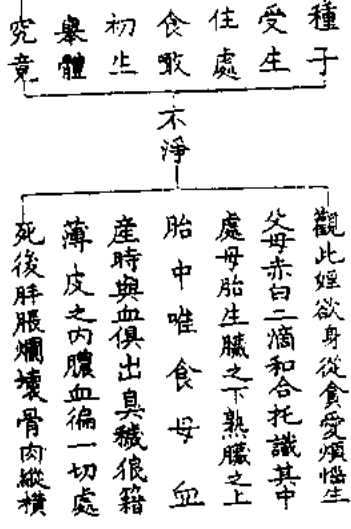 種子
受生
住處
食噉
初生
舉體
究竟
不淨
觀此婬欲身從貪愛煩惱生
父母赤白二滴和合托識其中
處母胎生臟之下熟臟之上
胎中唯食母血
產時與血俱出臭穢狼籍
薄皮之內膿血徧一切處
死後胖脹爛壞骨肉縱橫